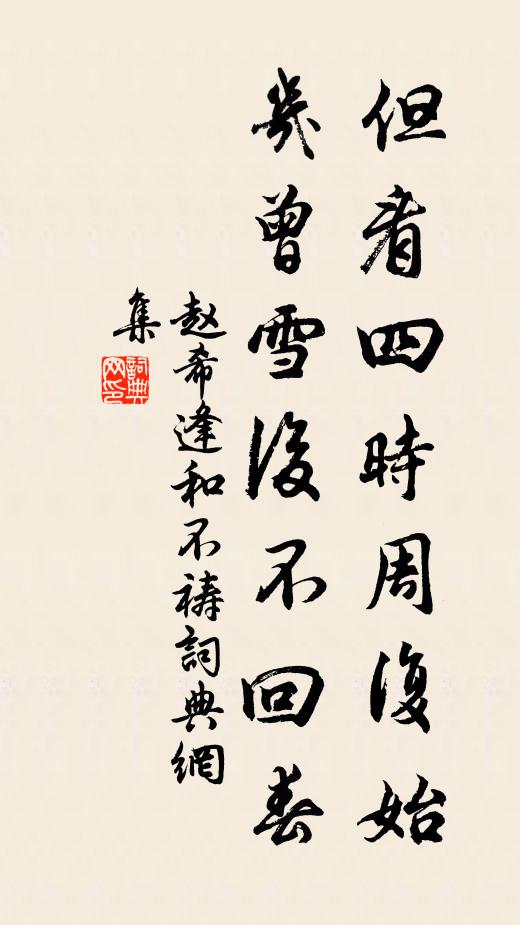 但看四時周復始
幾曾雪後不回春
赵希逢和不禱詞典網
集
詞典
网印